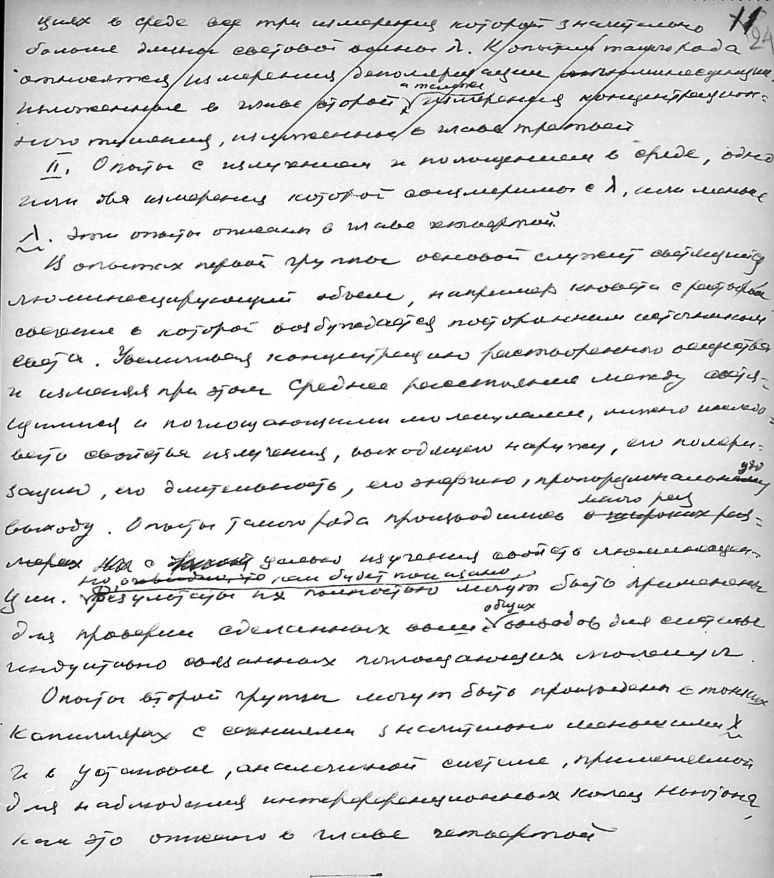 11 24
циях в среде все три измерения которой значительно
больше длины световой волны λ. К опытам такого рода
относятся измерения деполяризации люминесценции,
изложенные в главе второй а также измерения концентрацион-
ного тушения, изложенные в главе третьей
II. Опыты с излучением и поглощением в среде, одно
или два измерения которой соизмеримы с λ, или меньше
λ. Эти опыты описаны в главе четвертой.
В опытах первой группы основой служит светящийся
люминесцирующий объем, например кювета с раствором
свечение в которой возбуждается посторонним источником
света. Увеличивая концентрацию растворенного вещества
и изменяя при этом среднее расстояние между светя-
щимися и поглощающими молекулами, можно исследо-
вать свойства излучения, выходящего наружу, его поляри-
зацию, его длительность, его энергию, пропорциональную
много раз
выходу. Опыты такого рода производились в широких раз-
мерах с целью изучения свойств люминесцен-
но, как будет показано
ции. Результаты их полностью могут быть применены
общих
для проверки сделанных выше выводов для системы
индуктивно связанных поглощающих молекул.
Опыты второй группы могут быть произведены в тонких
капиллярах с сечениями значительно меньшими λ
и в установке, аналогичной системе, применяемой
для наблюдения интерференционных колец Ньютона,
как это описано в главе четвертой